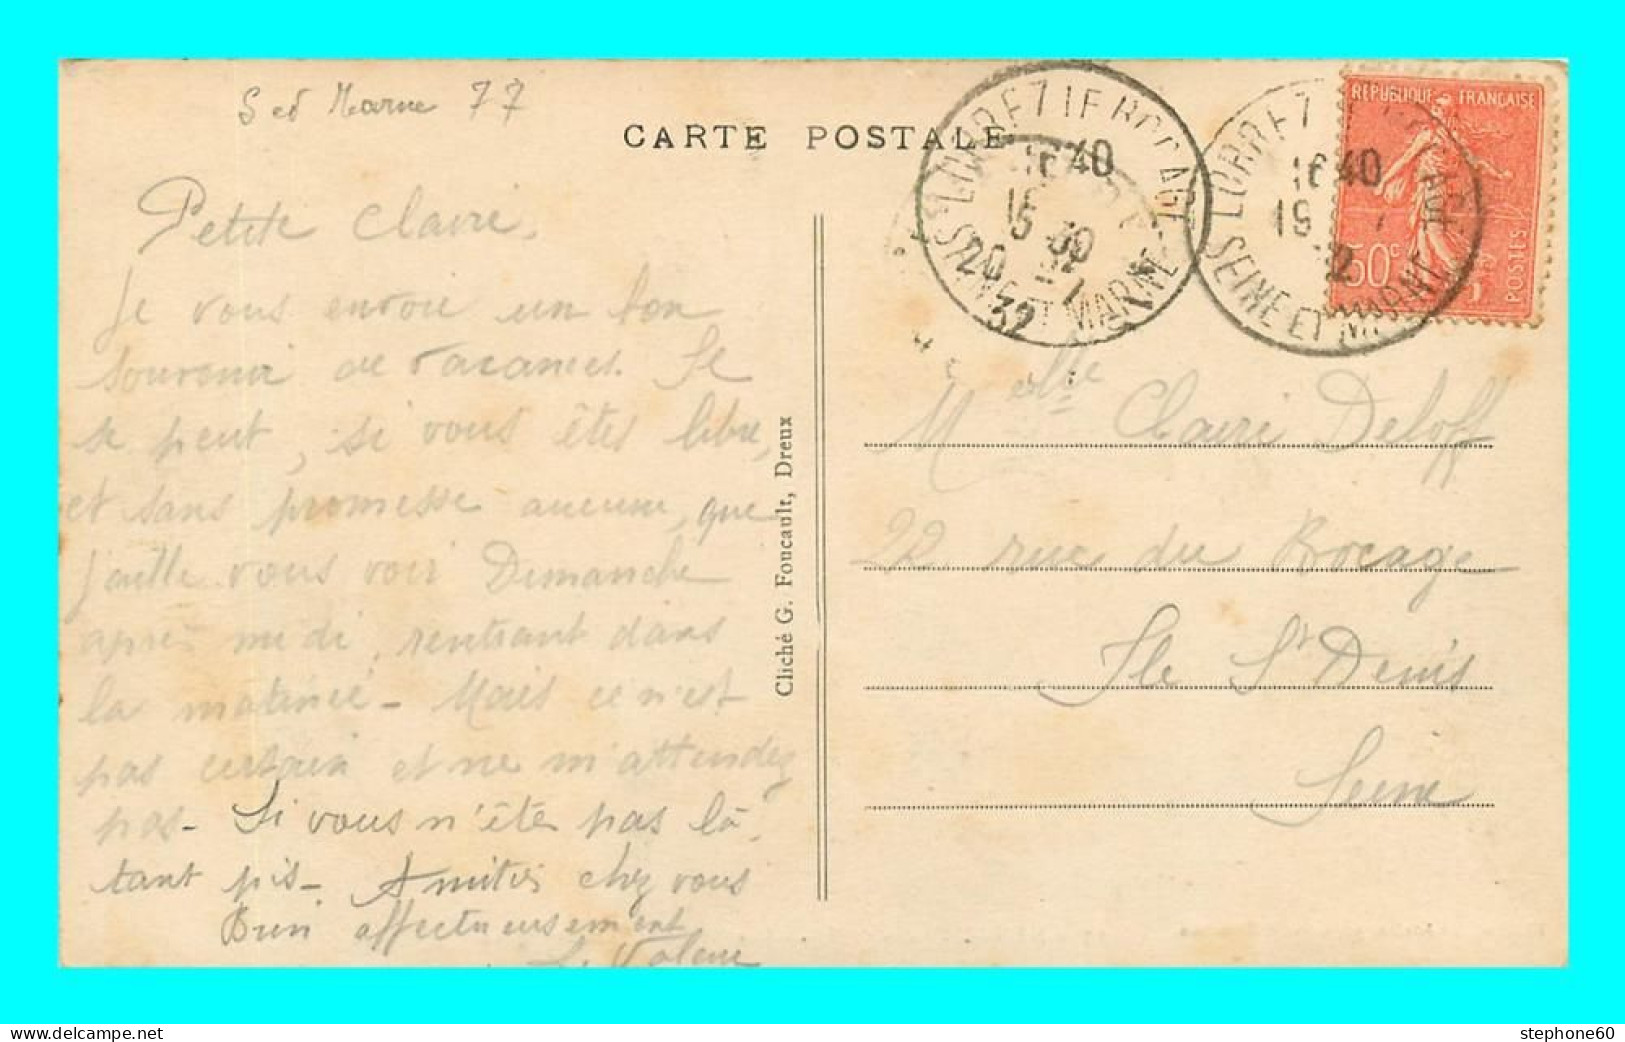 S et Marne 77
CARTE POSTALE
Petite Claire,
Je vous envoie un bon
souvenir de vacances. Il
se peut, si vous êtes libre,
et sans promesse aucune, que
j'aille vous voir Dimanche
après midi, rentrant dans
la matinée - Mais ce n'est
pas certain et ne m'attendez
pas - Si vous n'êtes pas là,
tant pis - Amitiés chez vous
Bien affectueusement
Cliché G. Foucault, Dreux
LORREZ LE BOCAGE
16 40
20 - 7
32
SEINE ET MARNE
LORREZ LE BOCAGE
16 40
19 - 7
32
SEINE ET MARNE
REPUBLIQUE FRANÇAISE
50c
POSTES
Melle Claire Deloff
22 rue du Bocage
Ile St Denis
Seine
delcampe.net
stephone60